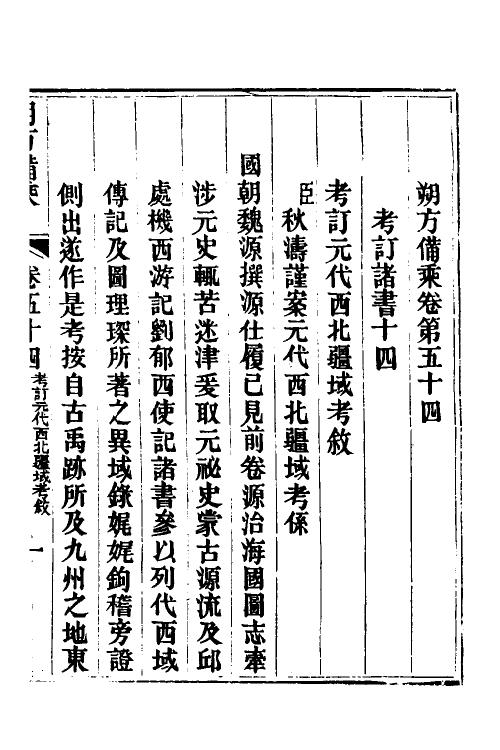 朔方備乘卷第五十四
考訂諸書十四
考訂元代西北疆域考敘
臣秋濤謹案元代西北疆域考係
國朝魏源撰源仕履已見前卷源治海國圖志牽
涉元史輒苦迷津爰取元祕史蒙古源流及邱
處機西游記劉郁西使記諸書參以列代西域
傳記及圖理琛所著之異域錄娓娓鉤稽旁證
側出遂作是考按自古禹跡所及九州之地東
朔方備乘
卷五十四
考訂元代西北疆域考敘
一